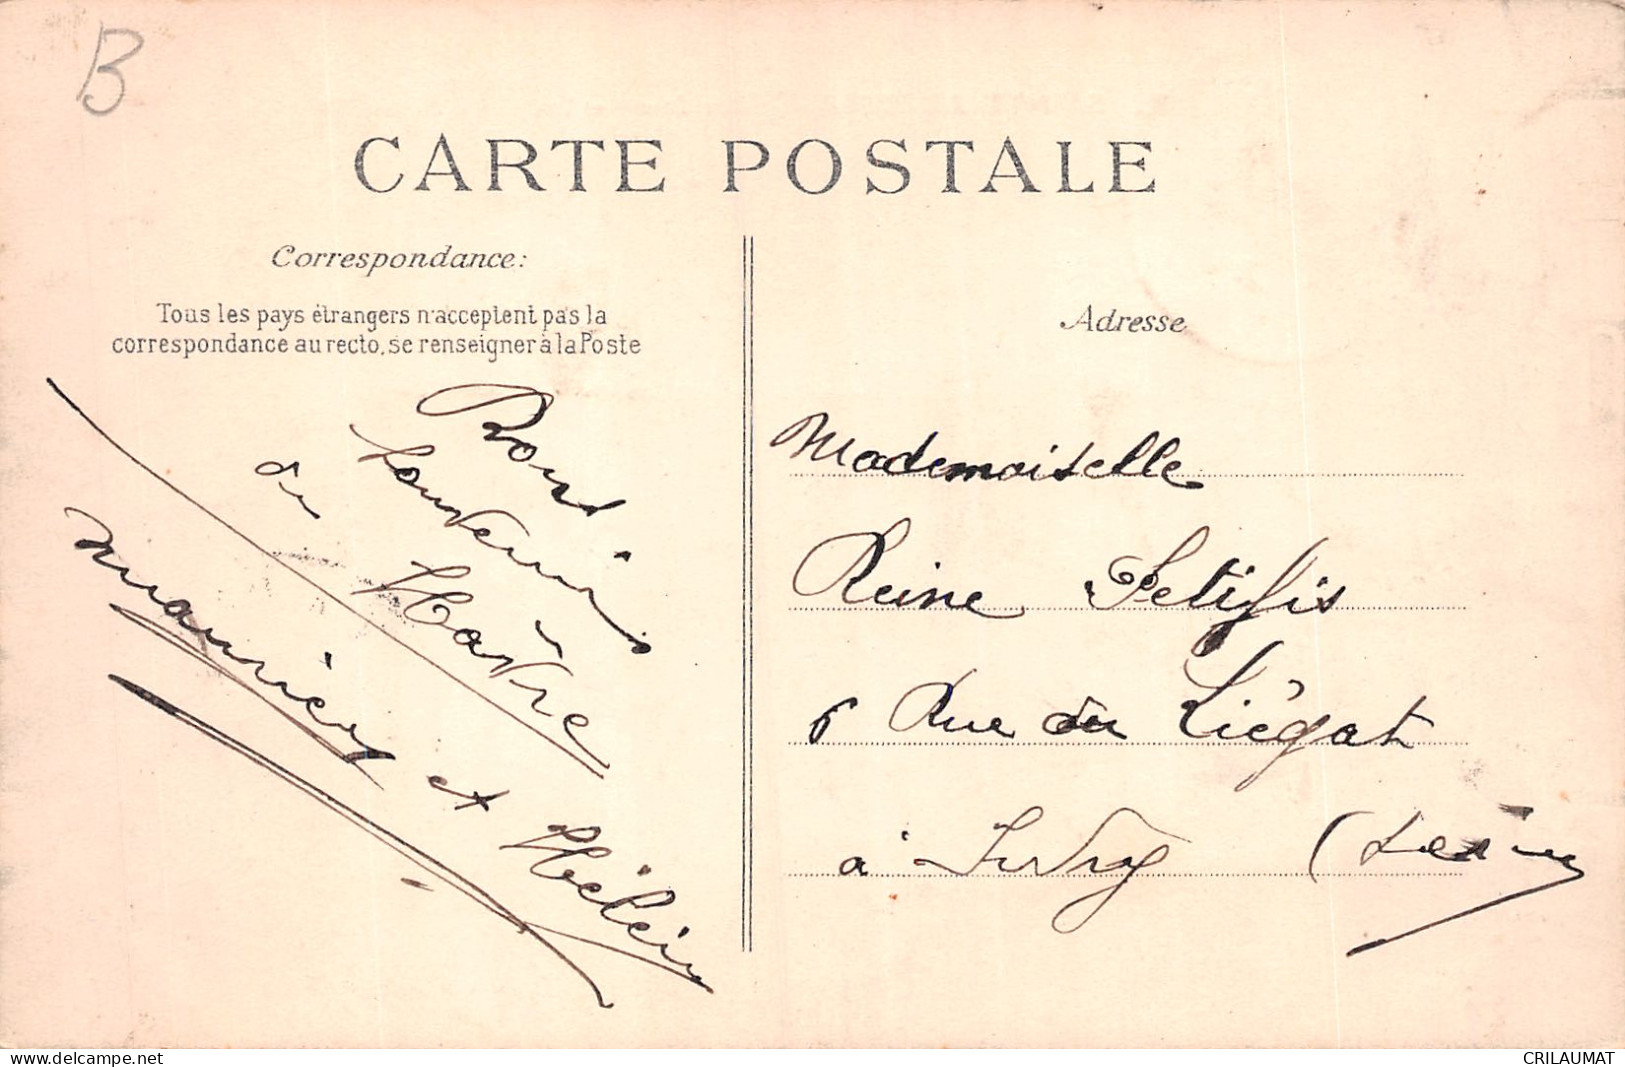 B
CARTE POSTALE
Correspondance:
Tous les pays étrangers n'acceptent pas la
correspondance au recto, se renseigner à la Poste
Bons
Souvenirs
du
Havre
et
Adresse
Mademoiselle
Reine Petitfis
6 Rue du Liégat
à Ivry (Seine
delcampe.net
CRILAUMAT